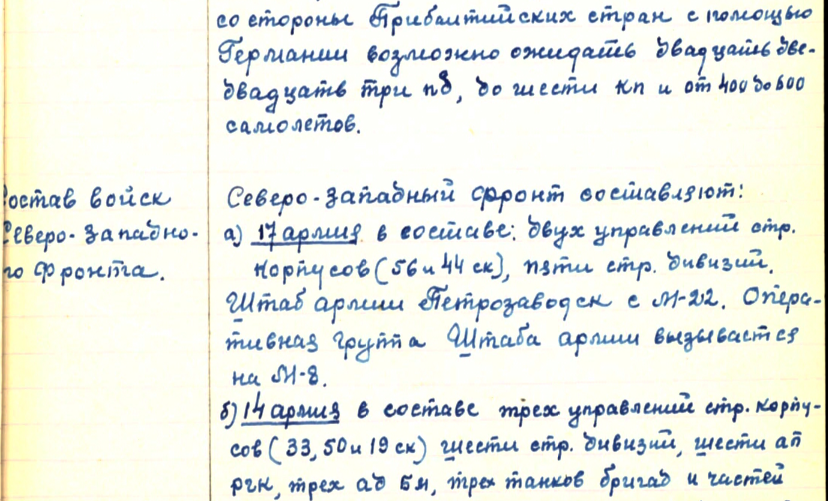 со стороны Прибалтийских стран с помощью
Германии возможно ожидать двадцать две-
двадцать три пд, до шести кп и от 400 до 600
самолетов.
остав войск
Северо-Западно-
го Фронта.
Северо-Западный Фронт составляют:
а) 17 армия в составе: двух управлений стр.
корпусов (56 и 44 ск), пяти стр. дивизий.
Штаб армии Петрозаводск с М-22. Опера-
тивная группа Штаба армии вызывается
на М-8.
б) 14 армия в составе трех управлений стр. корпу-
сов (33, 50 и 19 ск) шести стр. дивизий, шести ап
ргк, трех ад БМ, трех танков бригад и частей